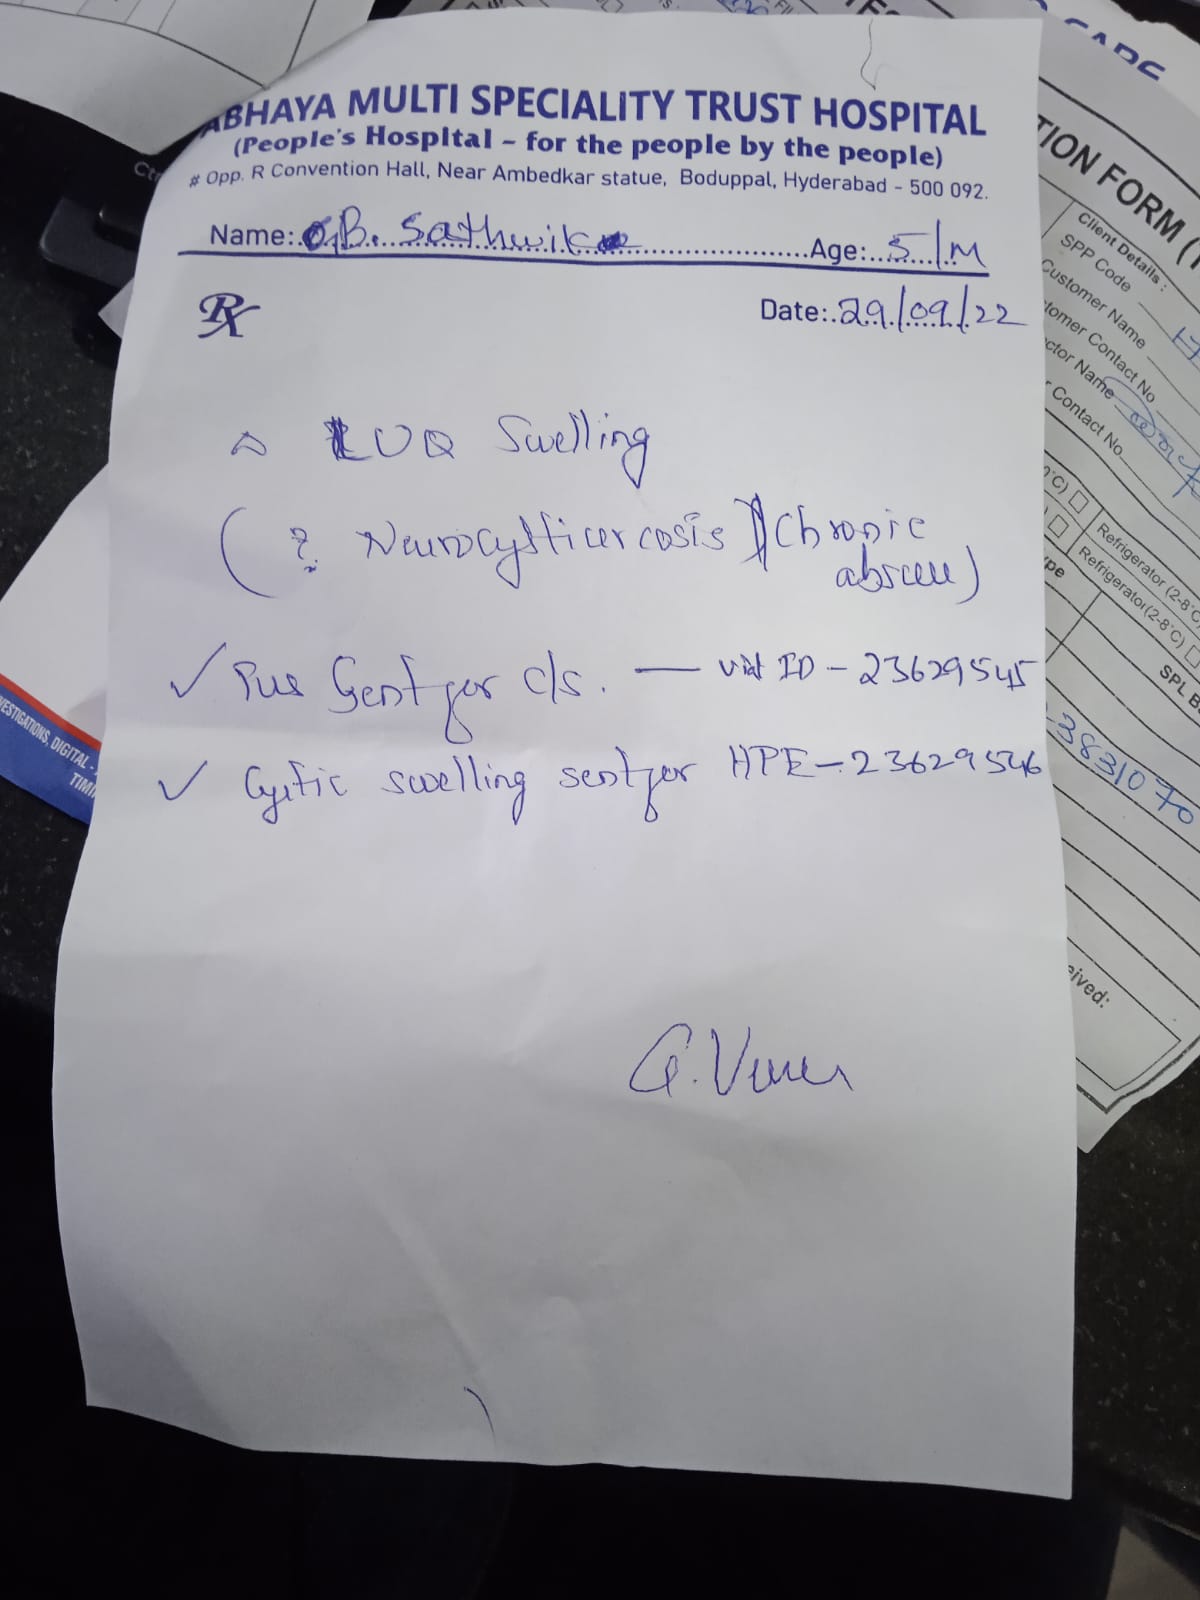 ABHAYA MULTI SPECIALITY TRUST HOSPITAL
(People's Hospital - for the people by the people)
# Opp. R Convention Hall, Near Ambedkar statue, Boduppal, Hyderabad - 500 092.
Name: G.B. Sathwik Age: 5/M
Rx Date: 29/09/22
△ LUQ Swelling
(? Neurocysticercosis) (Chronic
abscess)
✓ Pus Sent for c/s. — vial ID - 23629545
✓ Cystic swelling sent for HPE - 23629546
CARE
TION FORM
Client Details :
SPP Code
Customer Name
tomer Contact No
ctor Name
r Contact No
°C) Refrigerator (2-8°C)
Refrigerator (2-8°C)
ype
SPL B
3831070
eived:
VESTIGATIONS, DIGITAL -
TIM
Ctr